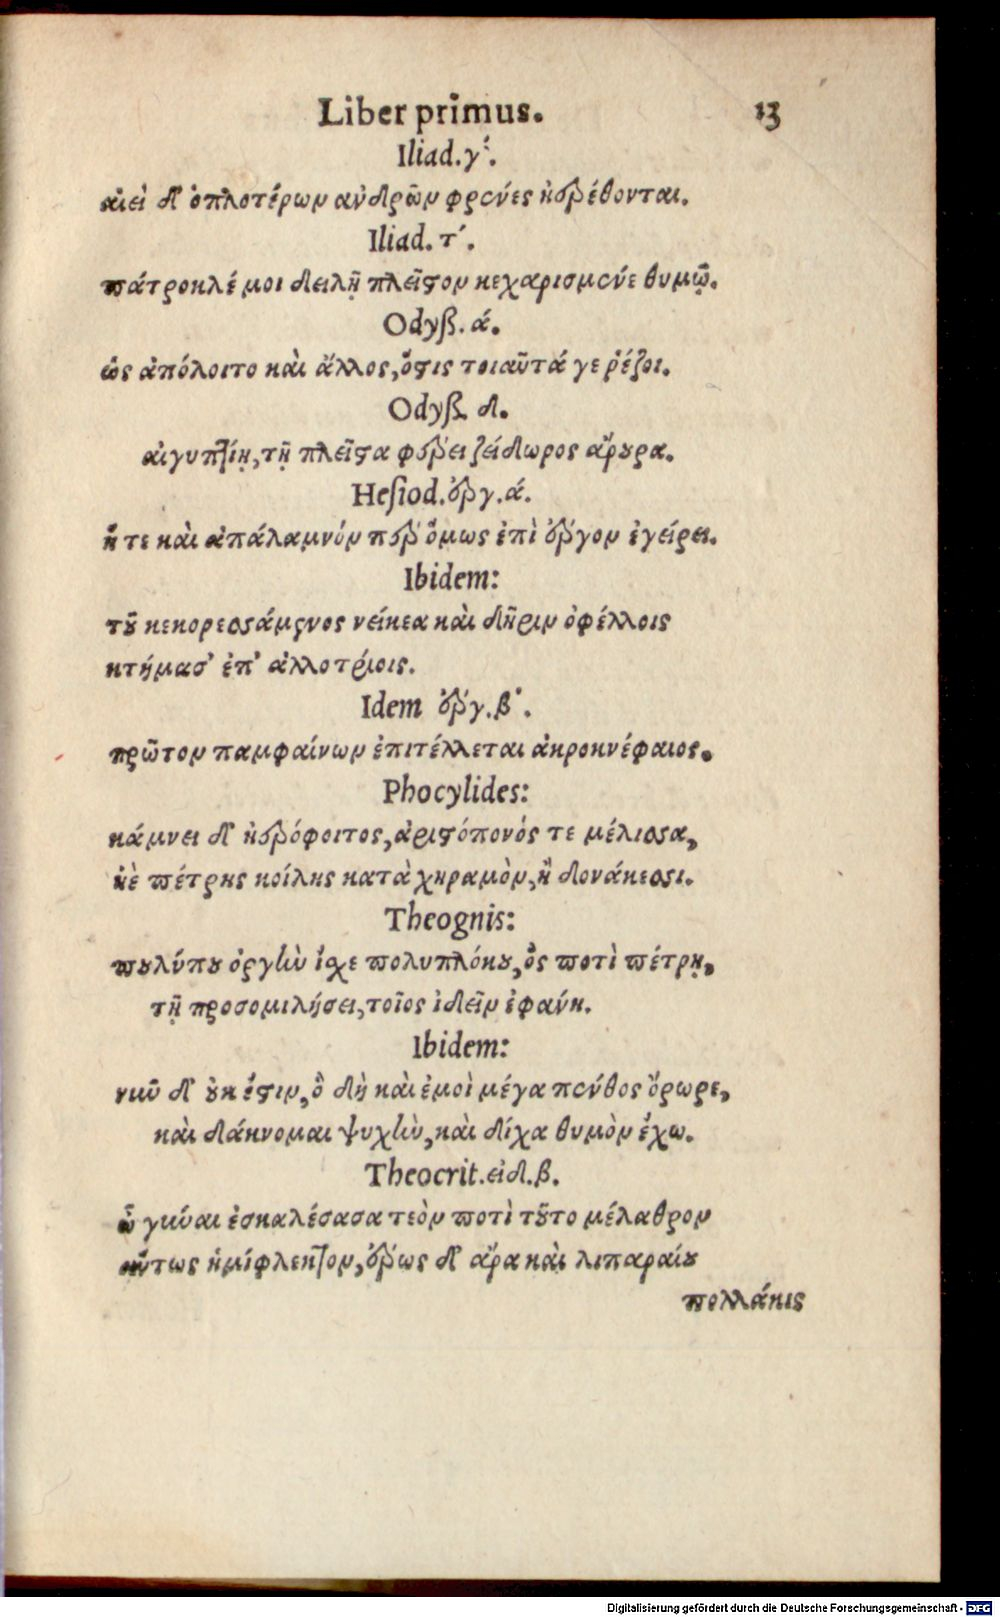 Liber primus. 13
Iliad. γ΄.
αἰεὶ δ᾽ ὁπλοτέρων ἀνδρῶν φρένες ἠερέθονται.
Iliad. τ΄.
πάτροκλέ μοι δειλῇ πλεῖστον κεχαρισμένε θυμῷ.
Odyß. ά.
ὡς ἀπόλοιτο καὶ ἄλλος, ὅτις τοιαῦτά γε ῥέζοι.
Odyß. δ.
αἰγυπτίη, τῇ πλεῖστα φέρει ζείδωρος ἄρουρα.
Hesiod. ἔργ. ά.
ἥ τε καὶ ἀπάλαμνόν περ ὅμως ἐπὶ ἔργον ἐγείρει.
Ibidem:
τοῦ κεκορεσσάμενος νείκεα καὶ δῆριν ὀφέλλοις
κτήμασ᾽ ἐπ᾽ ἀλλοτρίοις.
Idem ἔργ. β΄.
πρῶτον παμφαίνων ἐπιτέλλεται ἀκροκνέφαιος.
Phocylides:
κάμνει δ᾽ ἠερόφοιτος, ἀριστόπονός τε μέλισσα,
ἠὲ πέτρης κοίλης κατὰ χηραμὸν, ἢ δονάκεσσι.
Theognis:
πουλύπου ὀργὴν ἴσχε πολυπλόκου, ὃς ποτὶ πέτρῃ,
τῇ προσομιλήσει, τοῖος ἰδεῖν ἐφάνη.
Ibidem:
νῦν δ᾽ οὐκ ἔστιν, ὃ δὴ καὶ ἐμοὶ μέγα πένθος ὄρωρε,
καὶ δάκνομαι ψυχὴν, καὶ δίχα θυμὸν ἔχω.
Theocrit. εἰδ. β.
ὦ γύναι ἐσκαλέσασα τεὸν ποτὶ τοῦτο μέλαθρον
οὕτως ἡμίφλεκτον, ἔρως δ᾽ ἄρα καὶ λιπαραίου
πολλάκις
Digitalisierung gefördert durch die Deutsche Forschungsgemeinschaft - DFG